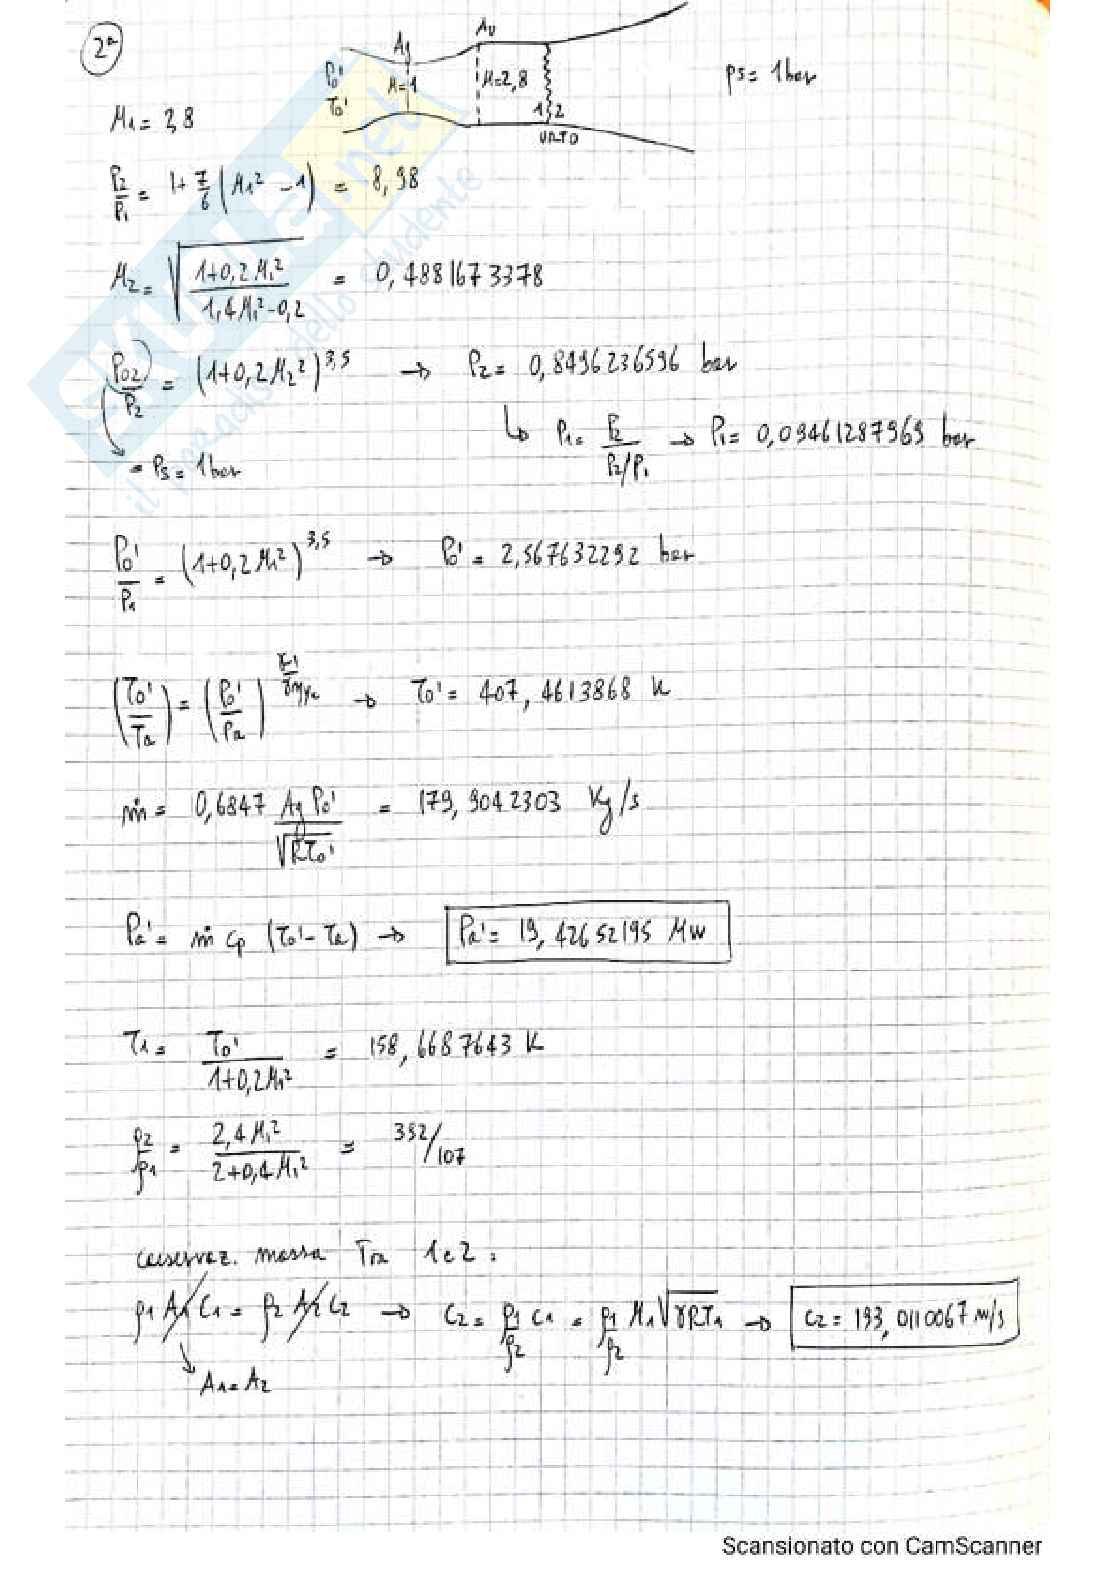 2ª
Ag
Av
P₀'
T₀'
M=1
M=2,8
1 2
URTO
ps = 1 bar
M₁ = 2,8
P₂/P₁ = 1 + 7/6 (M₁² - 1) = 8,98
M₂ = √((1+0,2M₁²)/(1,4M₁²-0,2)) = 0,4881673378
P₀₂/P₂ = (1+0,2M₂²)^3,5 → P₂ = 0,8496236596 bar
↳ P₁ = P₂/(P₂/P₁) → P₁ = 0,09461287969 bar
= Ps = 1 bar
P₀'/P₁ = (1+0,2M₁²)^3,5 → P₀' = 2,567632292 bar
(T₀'/Ta) = (P₀'/Pa)^(γ-1/γηyc) → T₀' = 407,4613868 K
ṁ = 0,6847 Ag P₀'/√RT₀' = 179,9042303 Kg/s
Pa' = ṁ cp (T₀' - Ta) → Pa' = 19,42652195 MW
T₁ = T₀'/(1+0,2M₁²) = 158,6687643 K
ρ₂/ρ₁ = 2,4M₁²/(2+0,4M₁²) = 392/107
conservaz. massa Tra 1 e 2:
ρ₁ A₁ C₁ = ρ₂ A₂ C₂ → C₂ = ρ₁/ρ₂ C₁ = ρ₁/ρ₂ M₁ √γRT₁ → C₂ = 193,0110067 m/s
A₁ = A₂
skuola.net
il paradiso dello studente
Scansionato con CamScanner